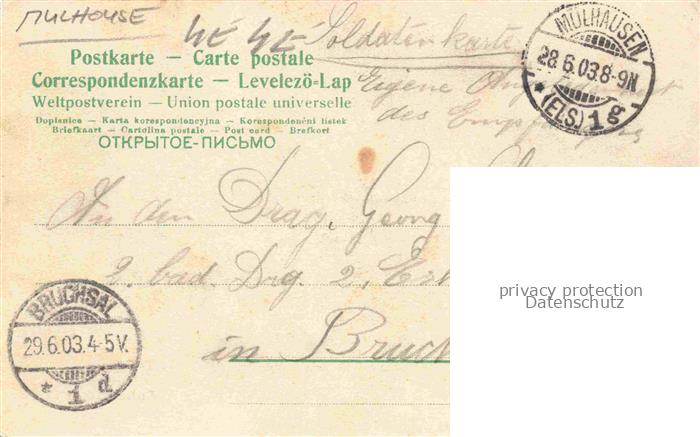 MULHOUSE
Soldatenkarte
Eigene
des Empfängers
Postkarte — Carte postale
Correspondenzkarte — Levelezö-Lap
Weltpostverein — Union postale universelle
Dopisnice — Karta korespondencyjna — Korespondenčni listek
Briefkaart — Cartolina postale — Post card — Brefkort
ОТКРЫТОЕ-ПИСЬМО
MÜLHAUSEN
28.6.03.8-9N
* (ELS.) 1g
An den Drag. Georg
2. bad. Drg. 2.
in Bruc
BRUCHSAL
29.6.03.4-5V.
* 1 d.
privacy protection
Datenschutz